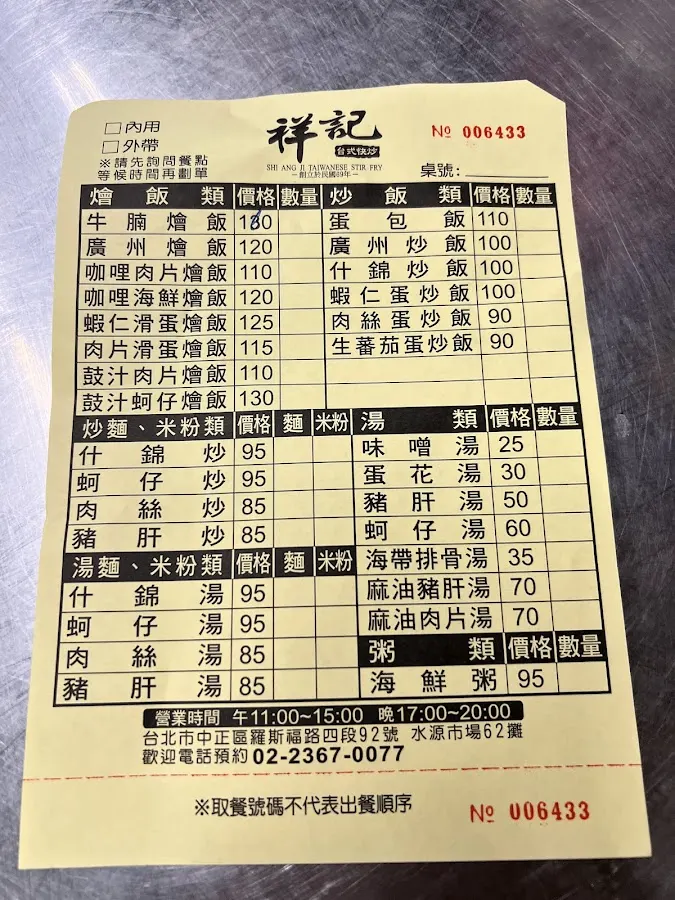 □內用
□外帶
※請先詢問餐點
等候時間再劃單
祥記
台式快炒
SHIANG JI TAIWANESE STIR-FRY
─創立於民國69年─
№ 006433
桌號:
燴飯類 價格 數量
牛腩燴飯
廣州燴飯 120
咖哩肉片燴飯 110
咖哩海鮮燴飯 120
蝦仁滑蛋燴飯 125
肉片滑蛋燴飯 115
鼓汁肉片燴飯 110
鼓汁蚵仔燴飯 130
炒飯類 價格 數量
蛋包飯 110
廣州炒飯 100
什錦炒飯 100
蝦仁蛋炒飯 100
肉絲蛋炒飯 90
生蕃茄蛋炒飯 90
炒麵、米粉類 價格 麵 米粉
什錦炒 95
蚵仔炒 95
肉絲炒 85
豬肝炒 85
湯麵、米粉類 價格 麵 米粉
什錦湯 95
蚵仔湯 95
肉絲湯 85
豬肝湯 85
湯類 價格 數量
味噌湯 25
蛋花湯 30
豬肝湯 50
蚵仔湯 60
海帶排骨湯 35
麻油豬肝湯 70
麻油肉片湯 70
粥類 價格 數量
海鮮粥 95
營業時間 午11:00~15:00 晚17:00~20:00
台北市中正區羅斯福路四段92號 水源市場62攤
歡迎電話預約 02-2367-0077
※取餐號碼不代表出餐順序
№ 006433